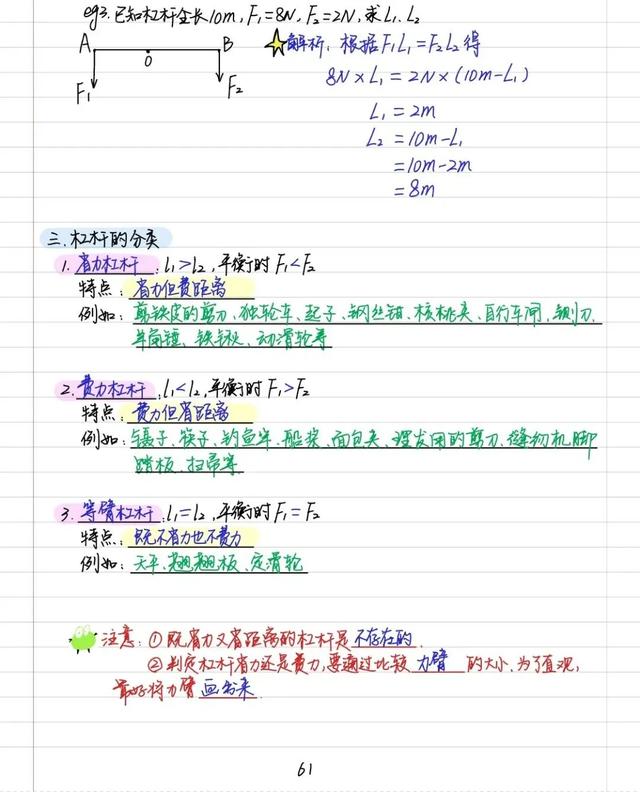 eg3.已知杠杆全长10m,F₁=8N,F₂=2N,求L₁.L₂
A O B
F₁ F₂
解析:根据F₁L₁=F₂L₂得
8N×L₁=2N×(10m-L₁)
L₁=2m
L₂=10m-L₁
=10m-2m
=8m
三.杠杆的分类
1.省力杠杆:l₁>l₂,平衡时F₁<F₂
特点:省力但费距离
例如:剪铁皮的剪刀、独轮车、起子、钢丝钳、核桃夹、自行车闸、铡刀、
羊角锤、铁锹、动滑轮等
2.费力杠杆:l₁<l₂,平衡时F₁>F₂
特点:费力但省距离
例如:镊子、筷子、钓鱼竿、船桨、面包夹、理发用的剪刀、缝纫机脚
踏板、扫帚等
3.等臂杠杆:l₁=l₂,平衡时F₁=F₂
特点:既不省力也不费力
例如:天平、翘翘板、定滑轮
注意:①既省力又省距离的杠杆是不存在的.
②判定杠杆省力还是费力,要通过比较力臂的大小.为了直观,
最好将力臂画出来.
61